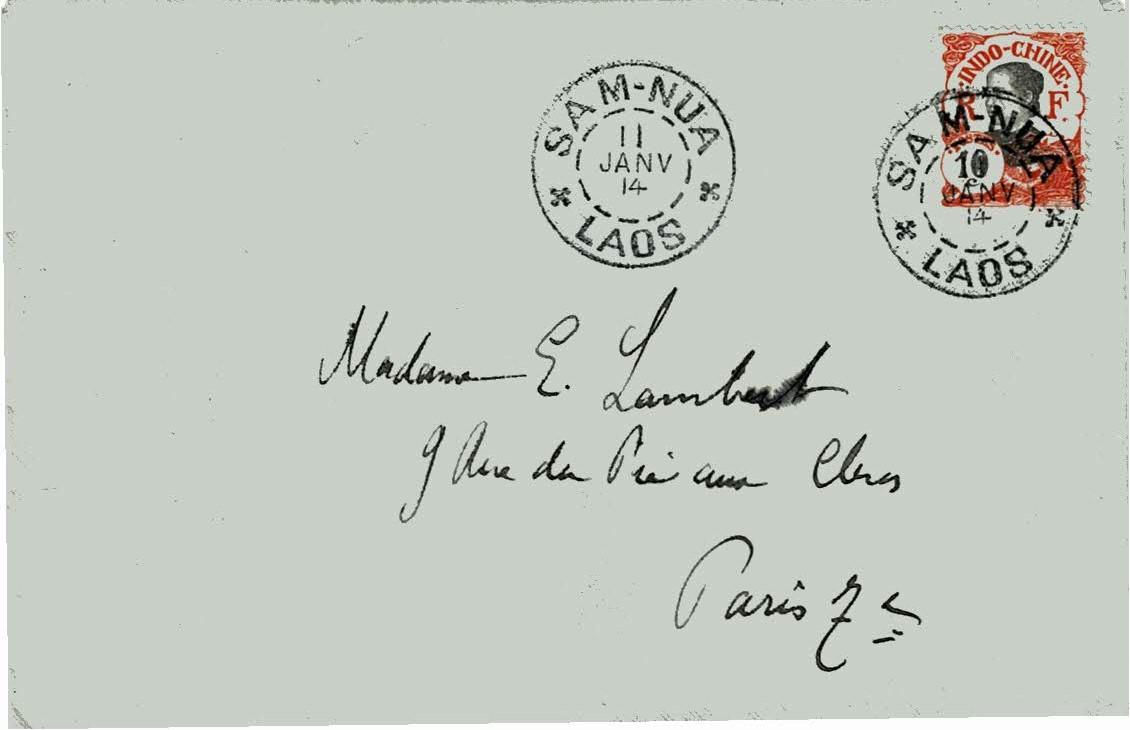 SAM-NUA
11
JANV
14
LAOS
INDO-CHINE
R F.
SAM-NUA
10
JANV
14
LAOS
Madame E. Lambert
9 Rue du Pré aux Clercs
Paris 7e